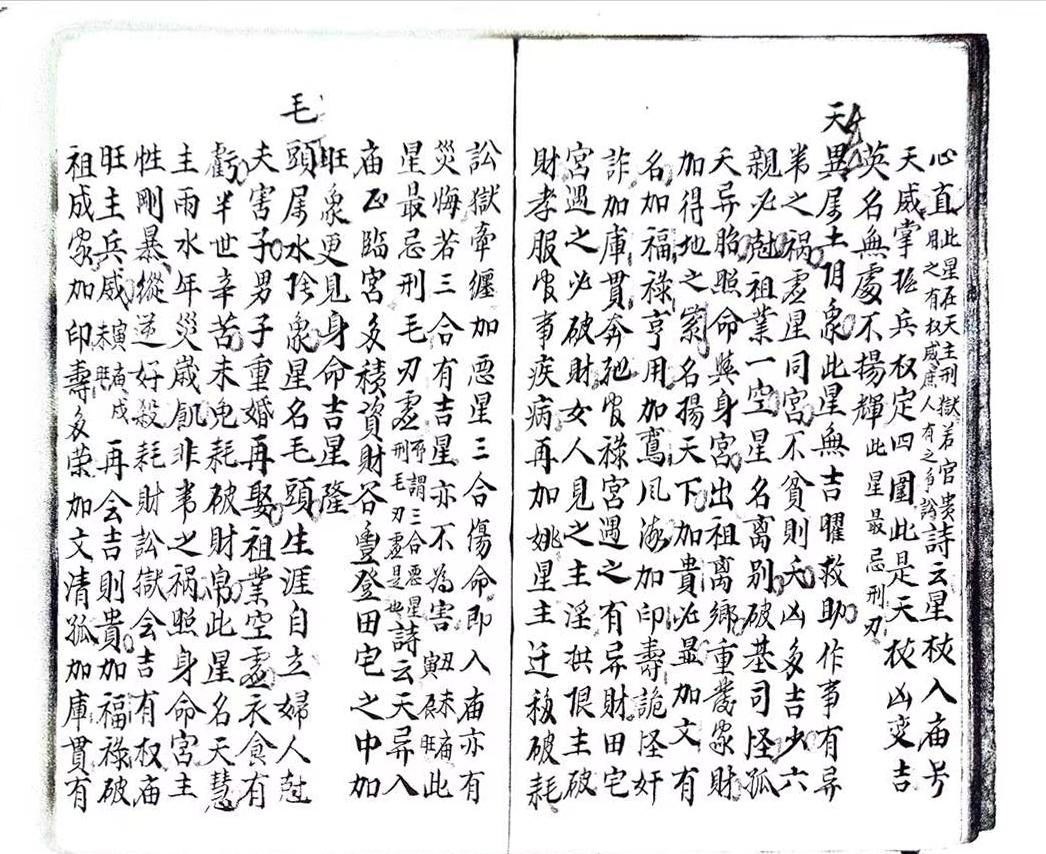 心直此星在天主刑獄若官貴用之有权威庶人有之争訟詩云星杖入庙号
天威掌握兵权定四圍此是天杖凶变吉
英名無處不揚輝此星最忌刑刃
天
異属土阴象此星無吉曜救助作事有异
事之祸虚星同宮不貧則夭凶多吉少六
親必尅祖業一空星名离别破基司怪孤
夭异胎照命與身宮出祖离鄉重發家財
加得地之紫名揚天下加貴必显加文有
名加福祿亨用加鸞凤海加印壽詭怪奸
詐加庫貫奔弛官祿宮遇之有异財田宅
宮遇之必破財女人見之主淫拱恨主破
財孝服官事疾病再加姚星主迁移破耗
訟獄牵纏加恶星三合傷命即入庙亦有
災悔若三合有吉星亦不為害丑未庙寅辰旺此
星最忌刑毛刃虚所謂三合恶星刑毛刃虚是也詩云天异入
庙正臨宮多積資財谷豐登田宅之中加
旺象更見身命吉星隆
毛
頭属水阴象星名毛頭生涯自立婦人尅
夫害子男子重婚再娶祖業空虚衣食有
虧半世辛苦未免耗破財帛此星名天慧
主雨水年災歲飢非事之祸照身命宮主
性剛暴縱逆好殺耗財訟獄会吉有权庙
旺主兵威寅庙戌未旺再会吉則貴加福祿破
祖成家加印壽多荣加文清孤加庫貫有